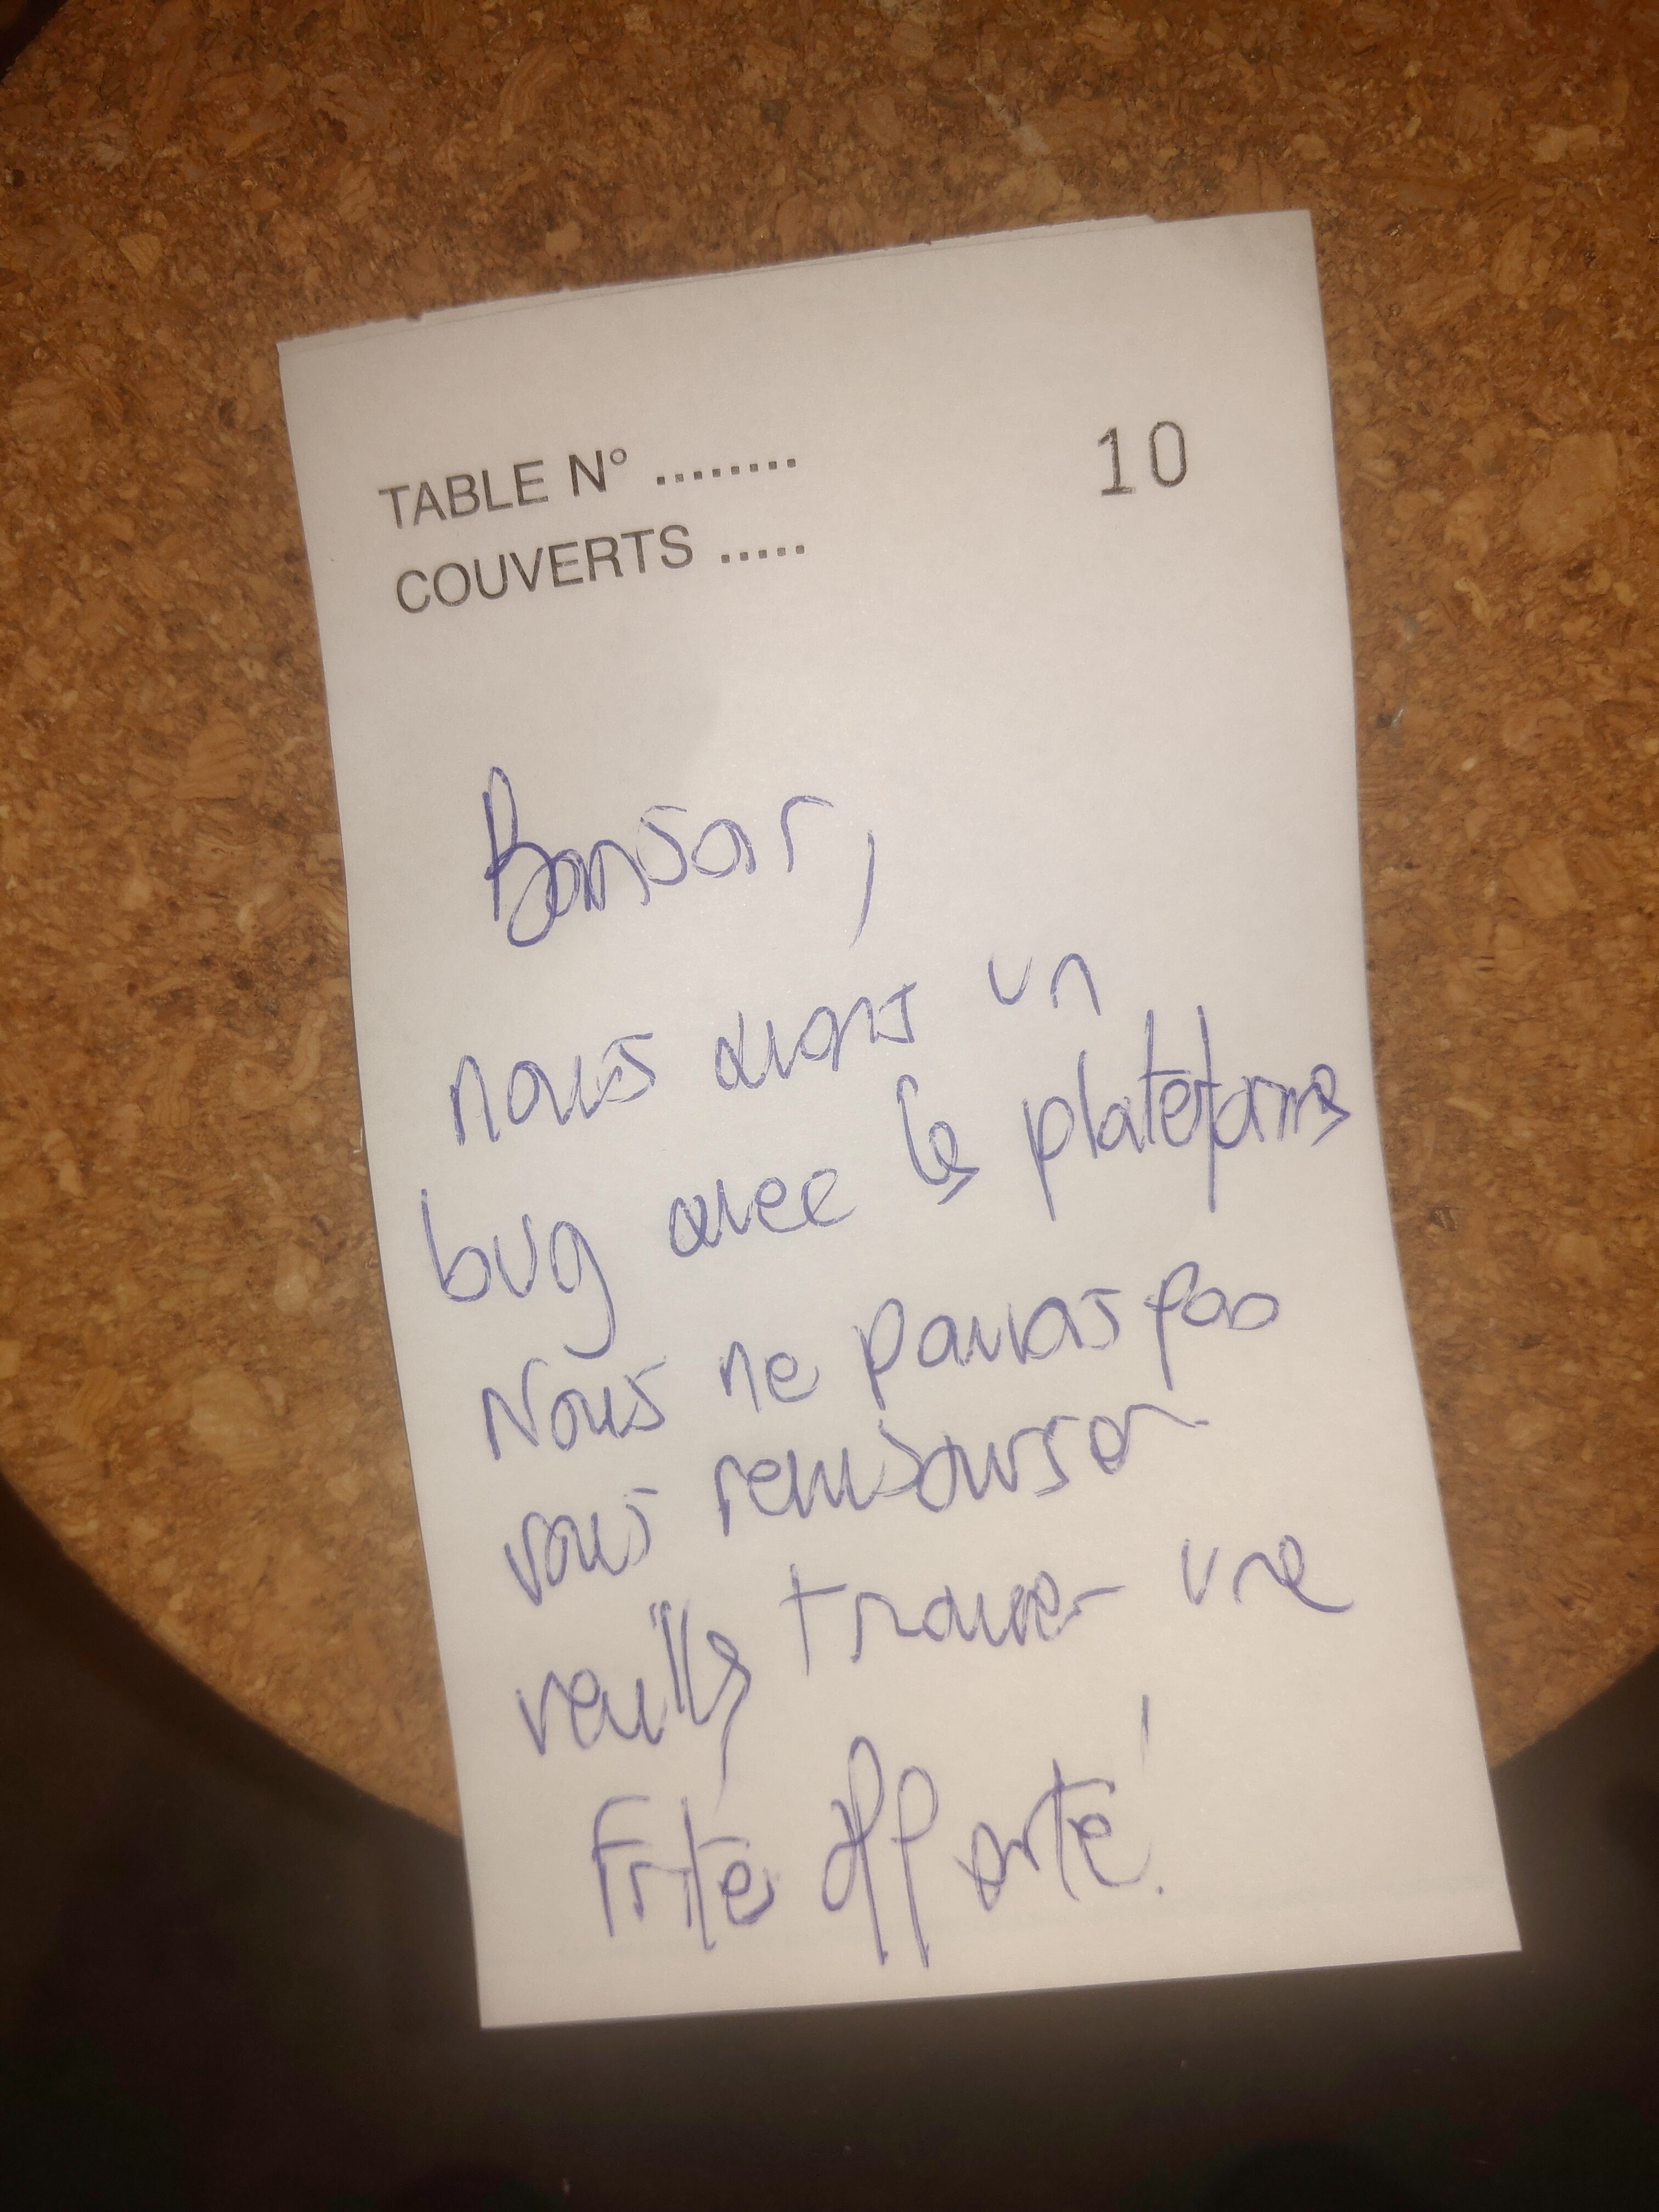 TABLE N° ........ 10
COUVERTS .....
Bonsoir,
nous avons un
bug avec les plateforme
Nous ne pouvons pas
vous rembourser
veuillez trouver une
Frite offerte !